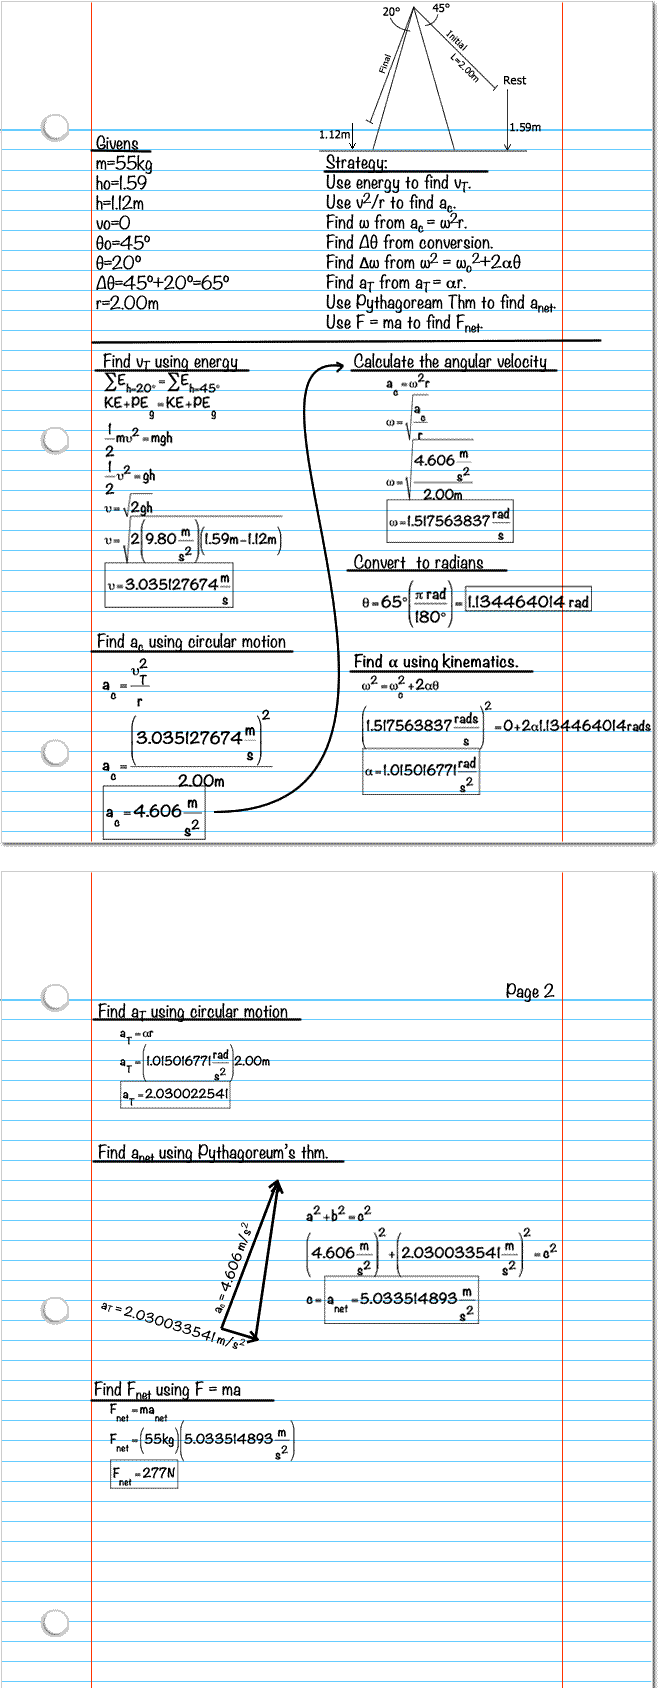 20° 45°
Initial
L=2.00m
Final
Rest
1.12m 1.59m
Givens
m=55kg
ho=1.59
h=1.12m
vo=0
θo=45°
θ=20°
Δθ=45°+20°=65°
r=2.00m
Strategy:
Use energy to find vT.
Use v²/r to find ac.
Find ω from ac = ω²r.
Find Δθ from conversion.
Find Δω from ω² = ωo²+2αθ
Find aT from aT = αr.
Use Pythagoream Thm to find anet.
Use F = ma to find Fnet.
Find vT using energy
∑Eh-20° = ∑Eh-45°
KE+PEg = KE+PEg
1/2 mυ² = mgh
1/2 υ² = gh
υ = √2gh
υ = √2(9.80 m/s²)(1.59m−1.12m)
υ = 3.035127674 m/s
Find ac using circular motion
ac = υT²/r
ac = (3.035127674 m/s)²/2.00m
ac = 4.606 m/s²
Calculate the angular velocity
ac = ω²r
ω = √ac/r
ω = √4.606 m/s²/2.00m
ω = 1.517563837 rad/s
Convert to radians
θ = 65°(π rad/180°) = 1.134464014 rad
Find α using kinematics.
ω² = ωo² + 2αθ
(1.517563837 rads/s)² = 0+2α1.134464014rads
α = 1.015016771 rad/s²
Page 2
Find aT using circular motion
aT = αr
aT = (1.015016771 rad/s²)2.00m
aT = 2.030022541
Find anet using Pythagoreum's thm.
ac = 4.606 m/s²
aT = 2.030033541 m/s²
a² + b² = c²
(4.606 m/s²)² + (2.030033541 m/s²)² = c²
c = anet = 5.033514893 m/s²
Find Fnet using F = ma
Fnet = manet
Fnet = (55kg)(5.033514893 m/s²)
Fnet = 277N